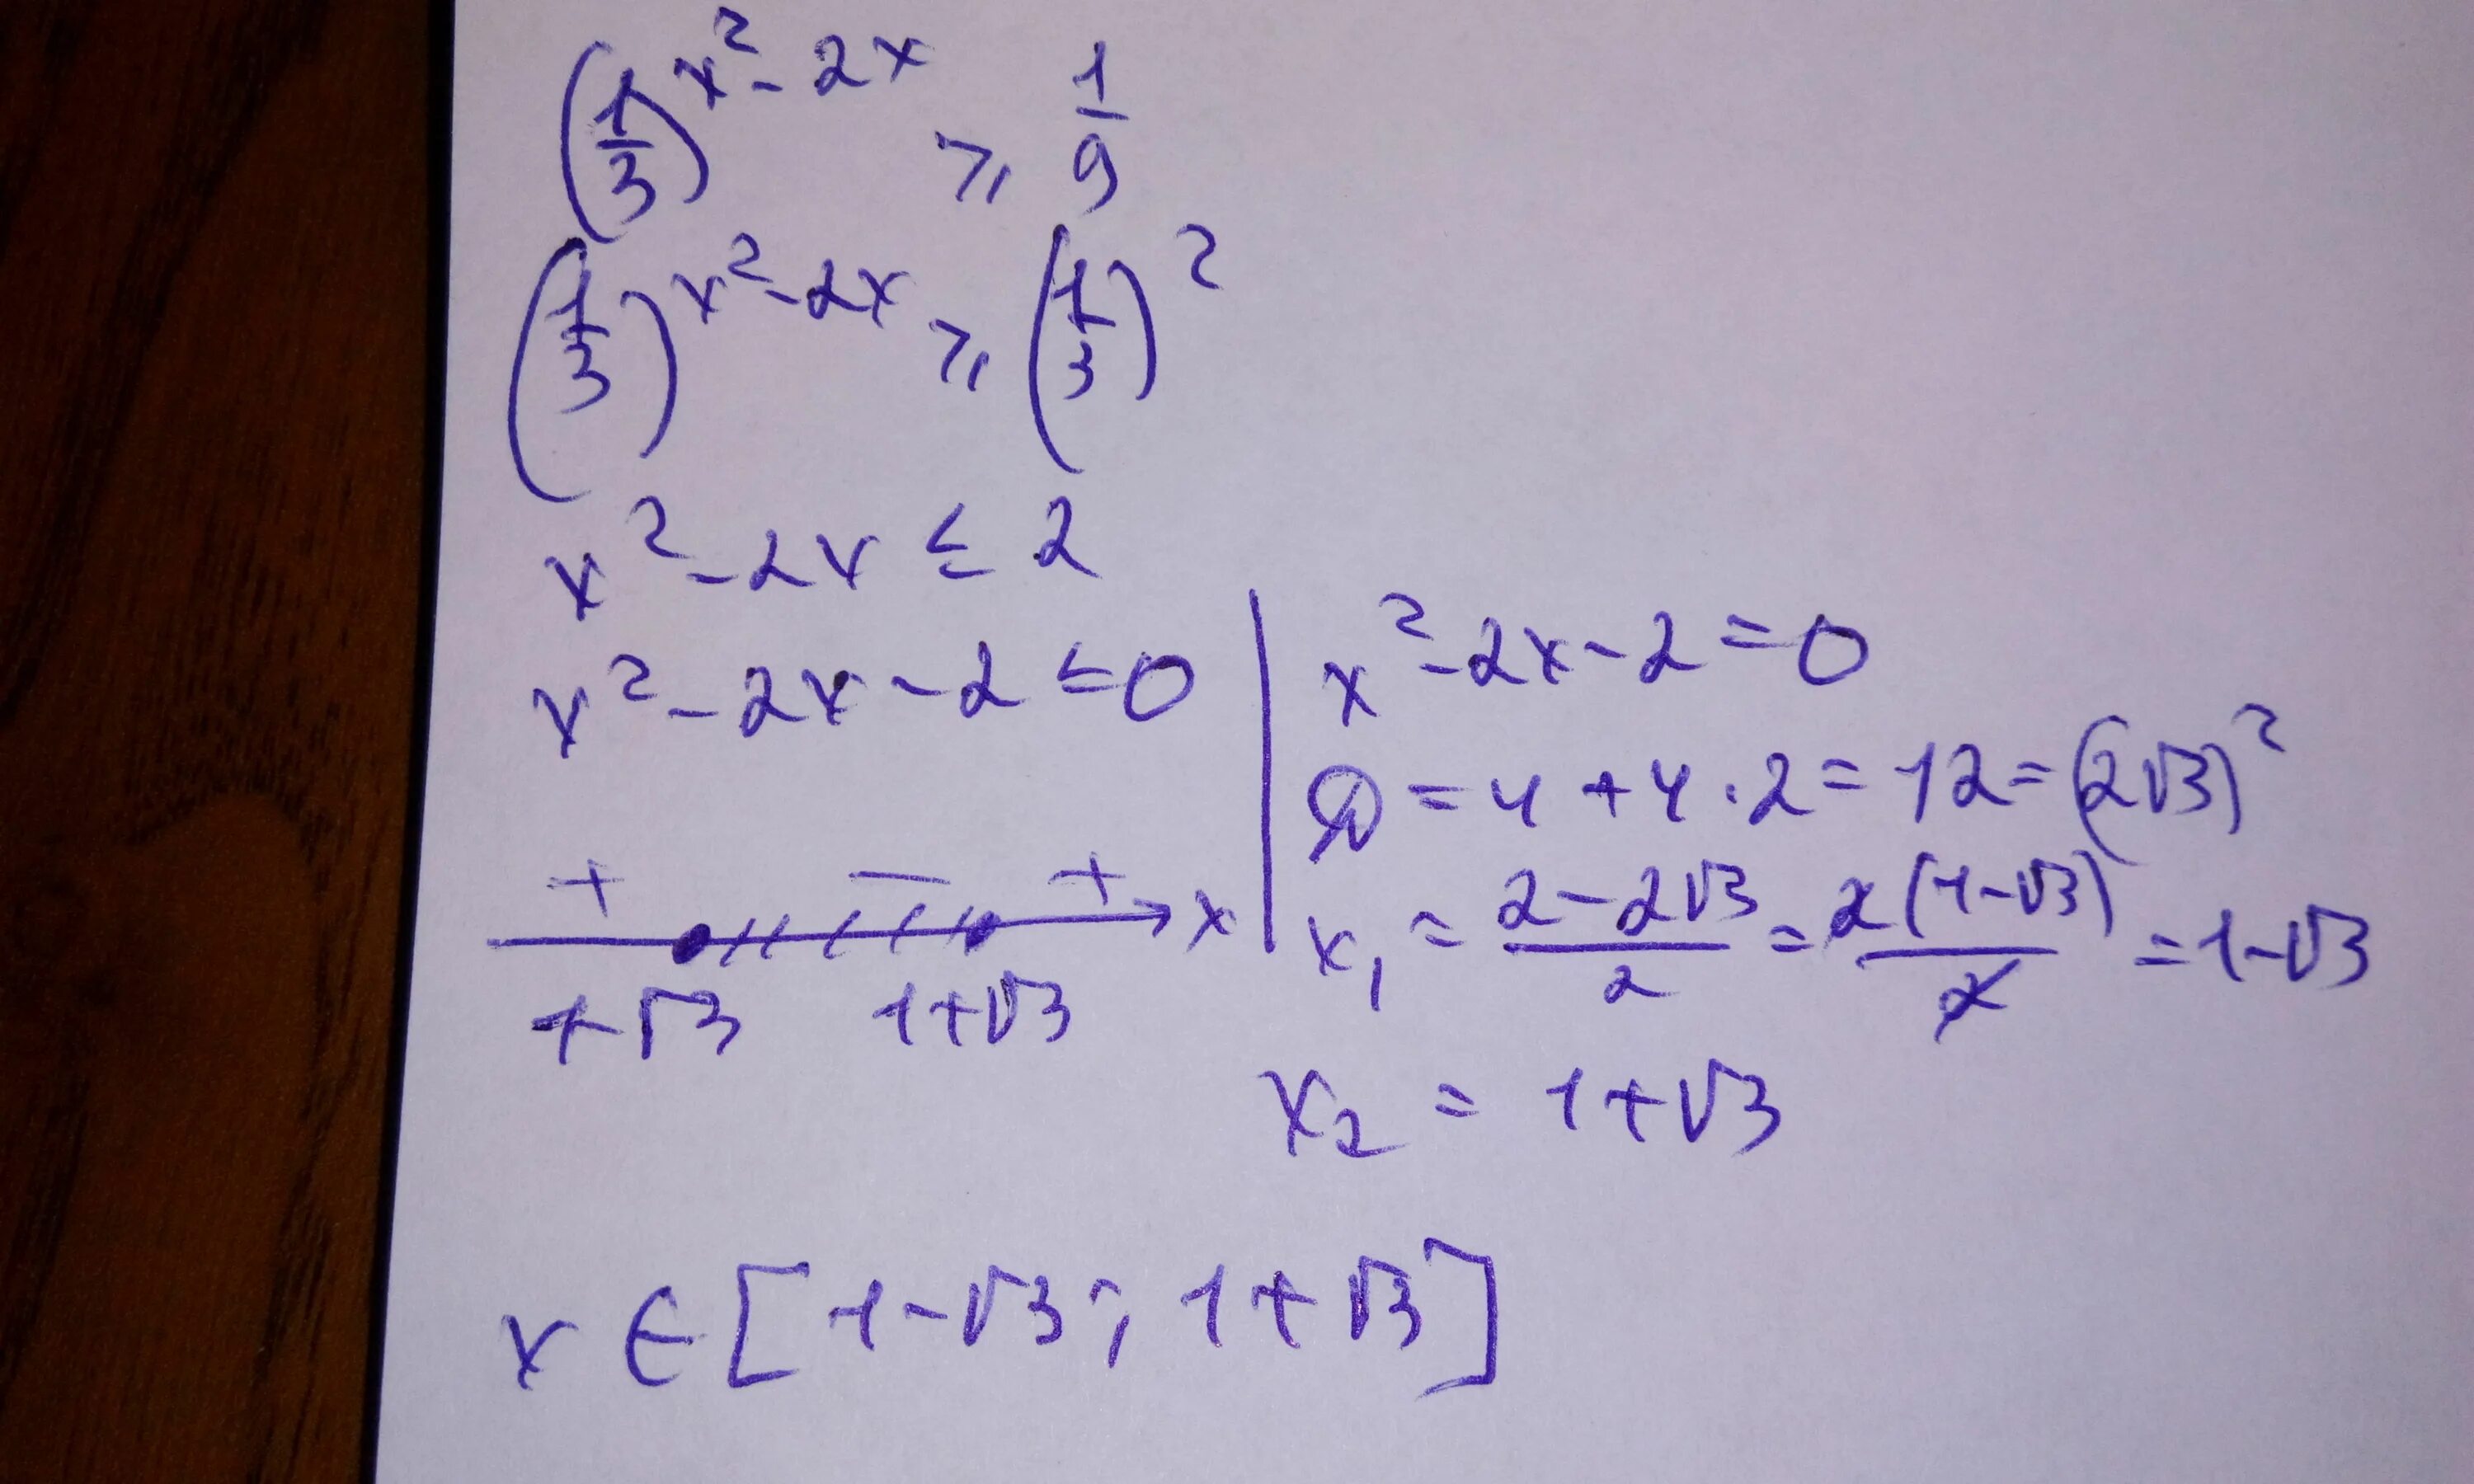 (1/3)^(x²-2x) ≥ 1/9
(1/3)^(x²-2x) ≥ (1/3)²
x²-2x ≤ 2
x²-2x-2 ≤ 0
+ − + x
1-√3 1+√3
x²-2x-2=0
D=4+4·2=12=(2√3)²
x₁ = (2-2√3)/2 = 2(1-√3)/2 = 1-√3
x₂ = 1+√3
x ∈ [1-√3; 1+√3]